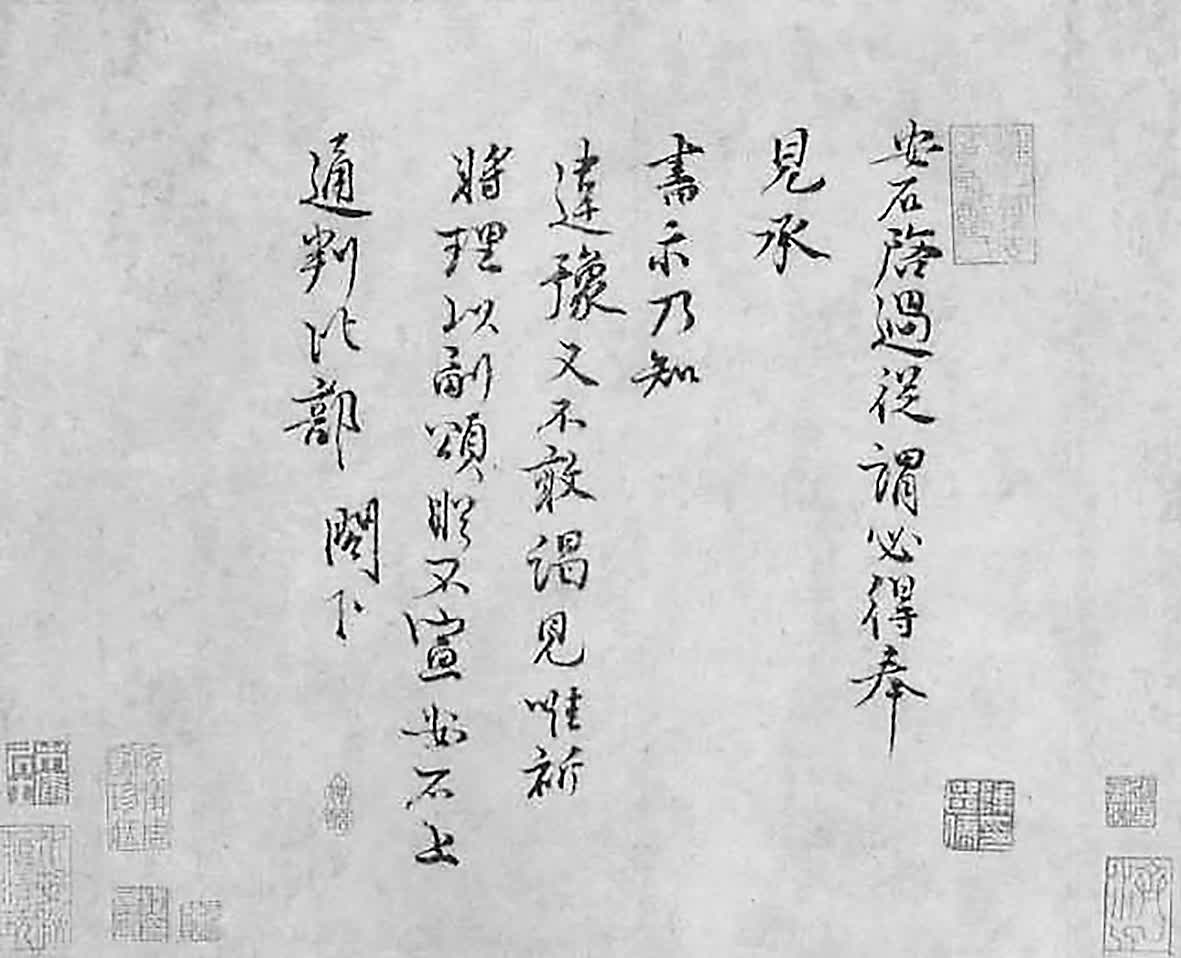 安石啓過從謂必得奉
見承
書示乃知
違豫又不敢謁見唯祈
將理以副頌眂不宣安石上
通判比部閤下